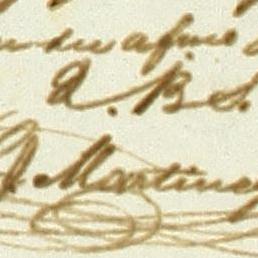 su afmo
Q. B. S.
J. Martinez